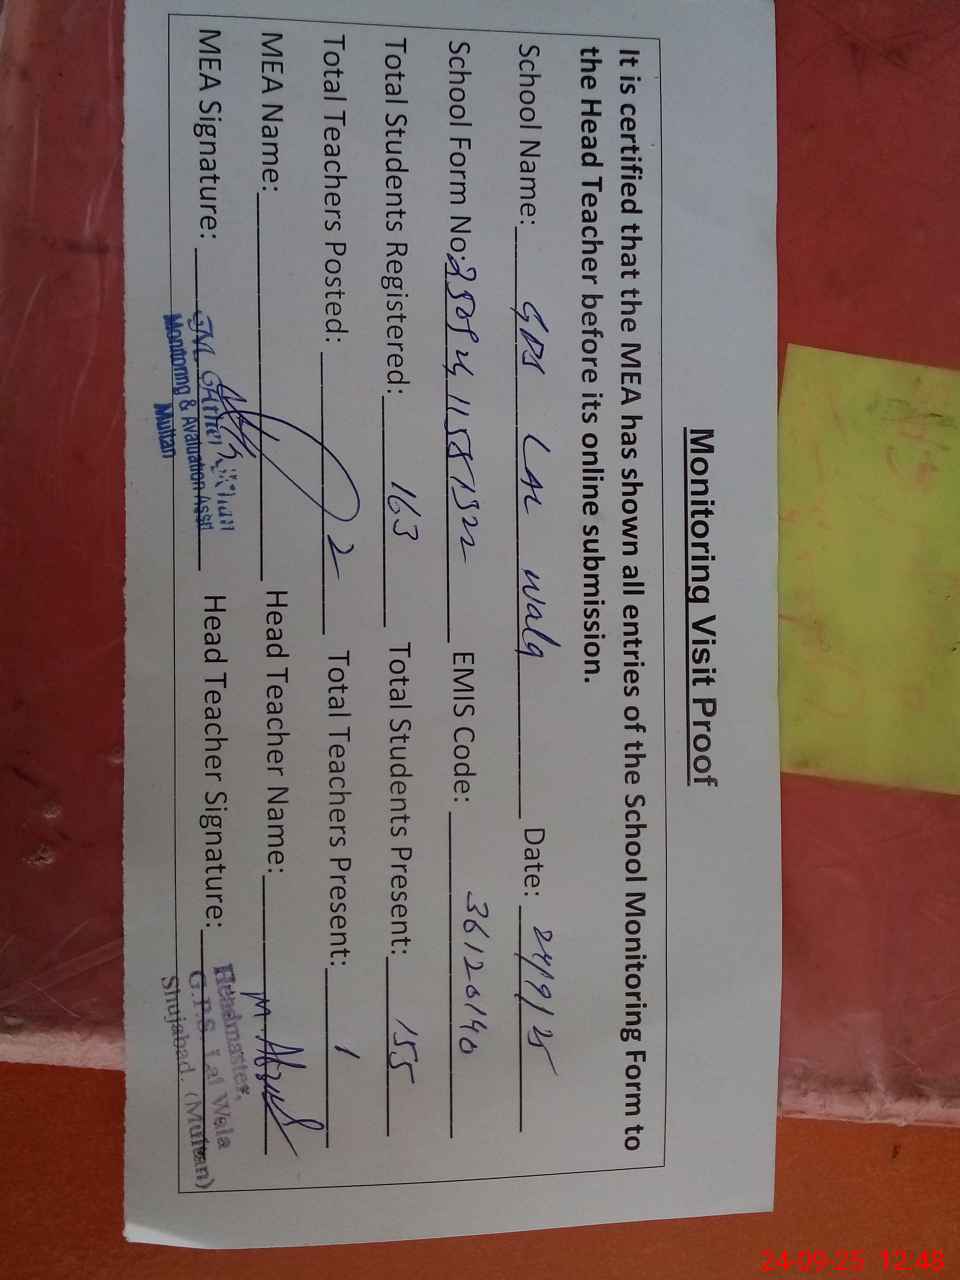 Monitoring Visit Proof
It is certified that the MEA has shown all entries of the School Monitoring Form to
the Head Teacher before its online submission.
School Name: GPS LAL wala Date: 24/9/25
School Form No: EMIS Code: 36120140
Total Students Registered: 163 Total Students Present: 155
Total Teachers Posted: 2 Total Teachers Present: 1
MEA Name: Head Teacher Name: M. Afzal
MEA Signature: Head Teacher Signature:
Khan
Monitoring & Avaluation Asstt
Multan
Headmaster,
G.P.S. Lal Wala
Shujabad. (Multan)
24-09-25 12:48